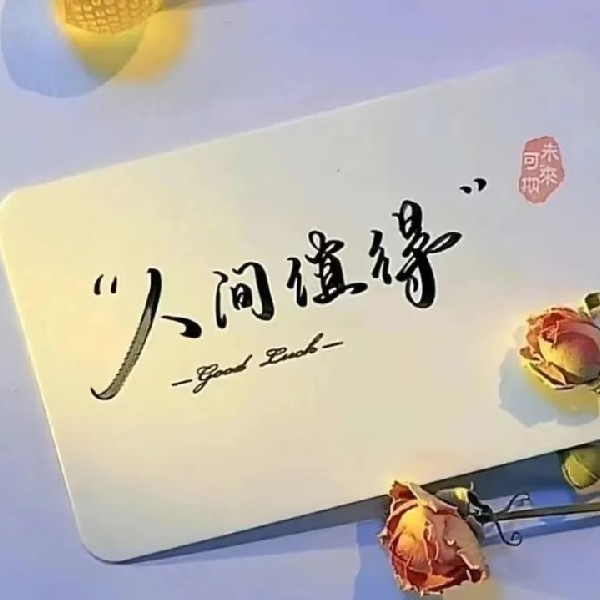 “人间值得”
—Good Luck—
未来
可期